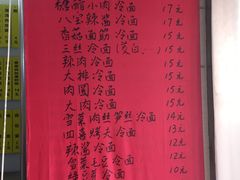 糖醋小肉冷面 17元
八宝辣酱冷面 17元
香菇面筋冷面 15元
三丝冷面(茭白) 15元
辣肉冷面 15元
大排冷面 15元
肉圆冷面 15元
大肉冷面 15元
雪菜肉丝笋丝冷面 14元
四喜烤夫冷面 13元
辣酱冷面 12元
雪菜毛豆冷面 12元
冷面 10元